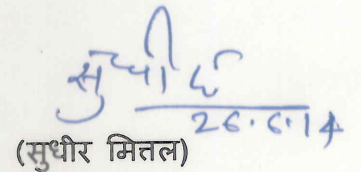 सुधीर
26.6.14
(सुधीर मित्तल)